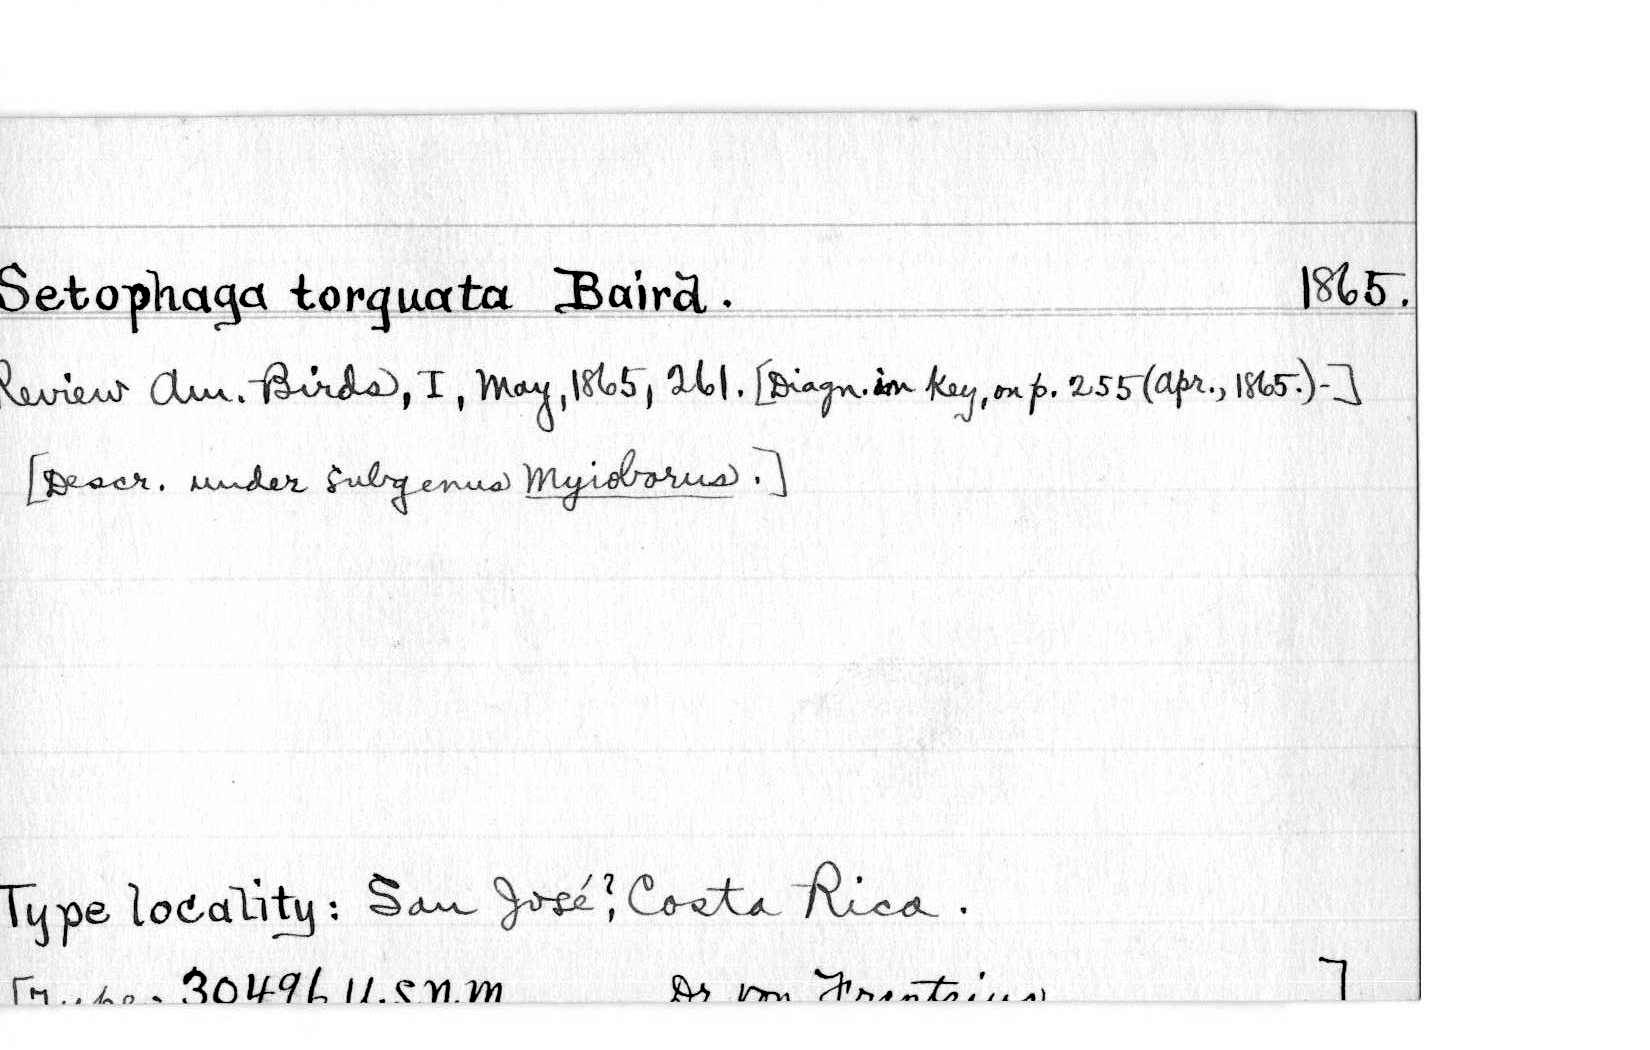 Setophaga torquata Baird. 1865.
Review Am. Birds, I, May, 1865, 261. [Diagn. in Key, on p. 255 (Apr., 1865.)-]
[Descr. under subgenus Myioborus.]
Type locality: San José?, Costa Rica.
[Type. 30496 U.S.N.M. Dr von Frantzius ]